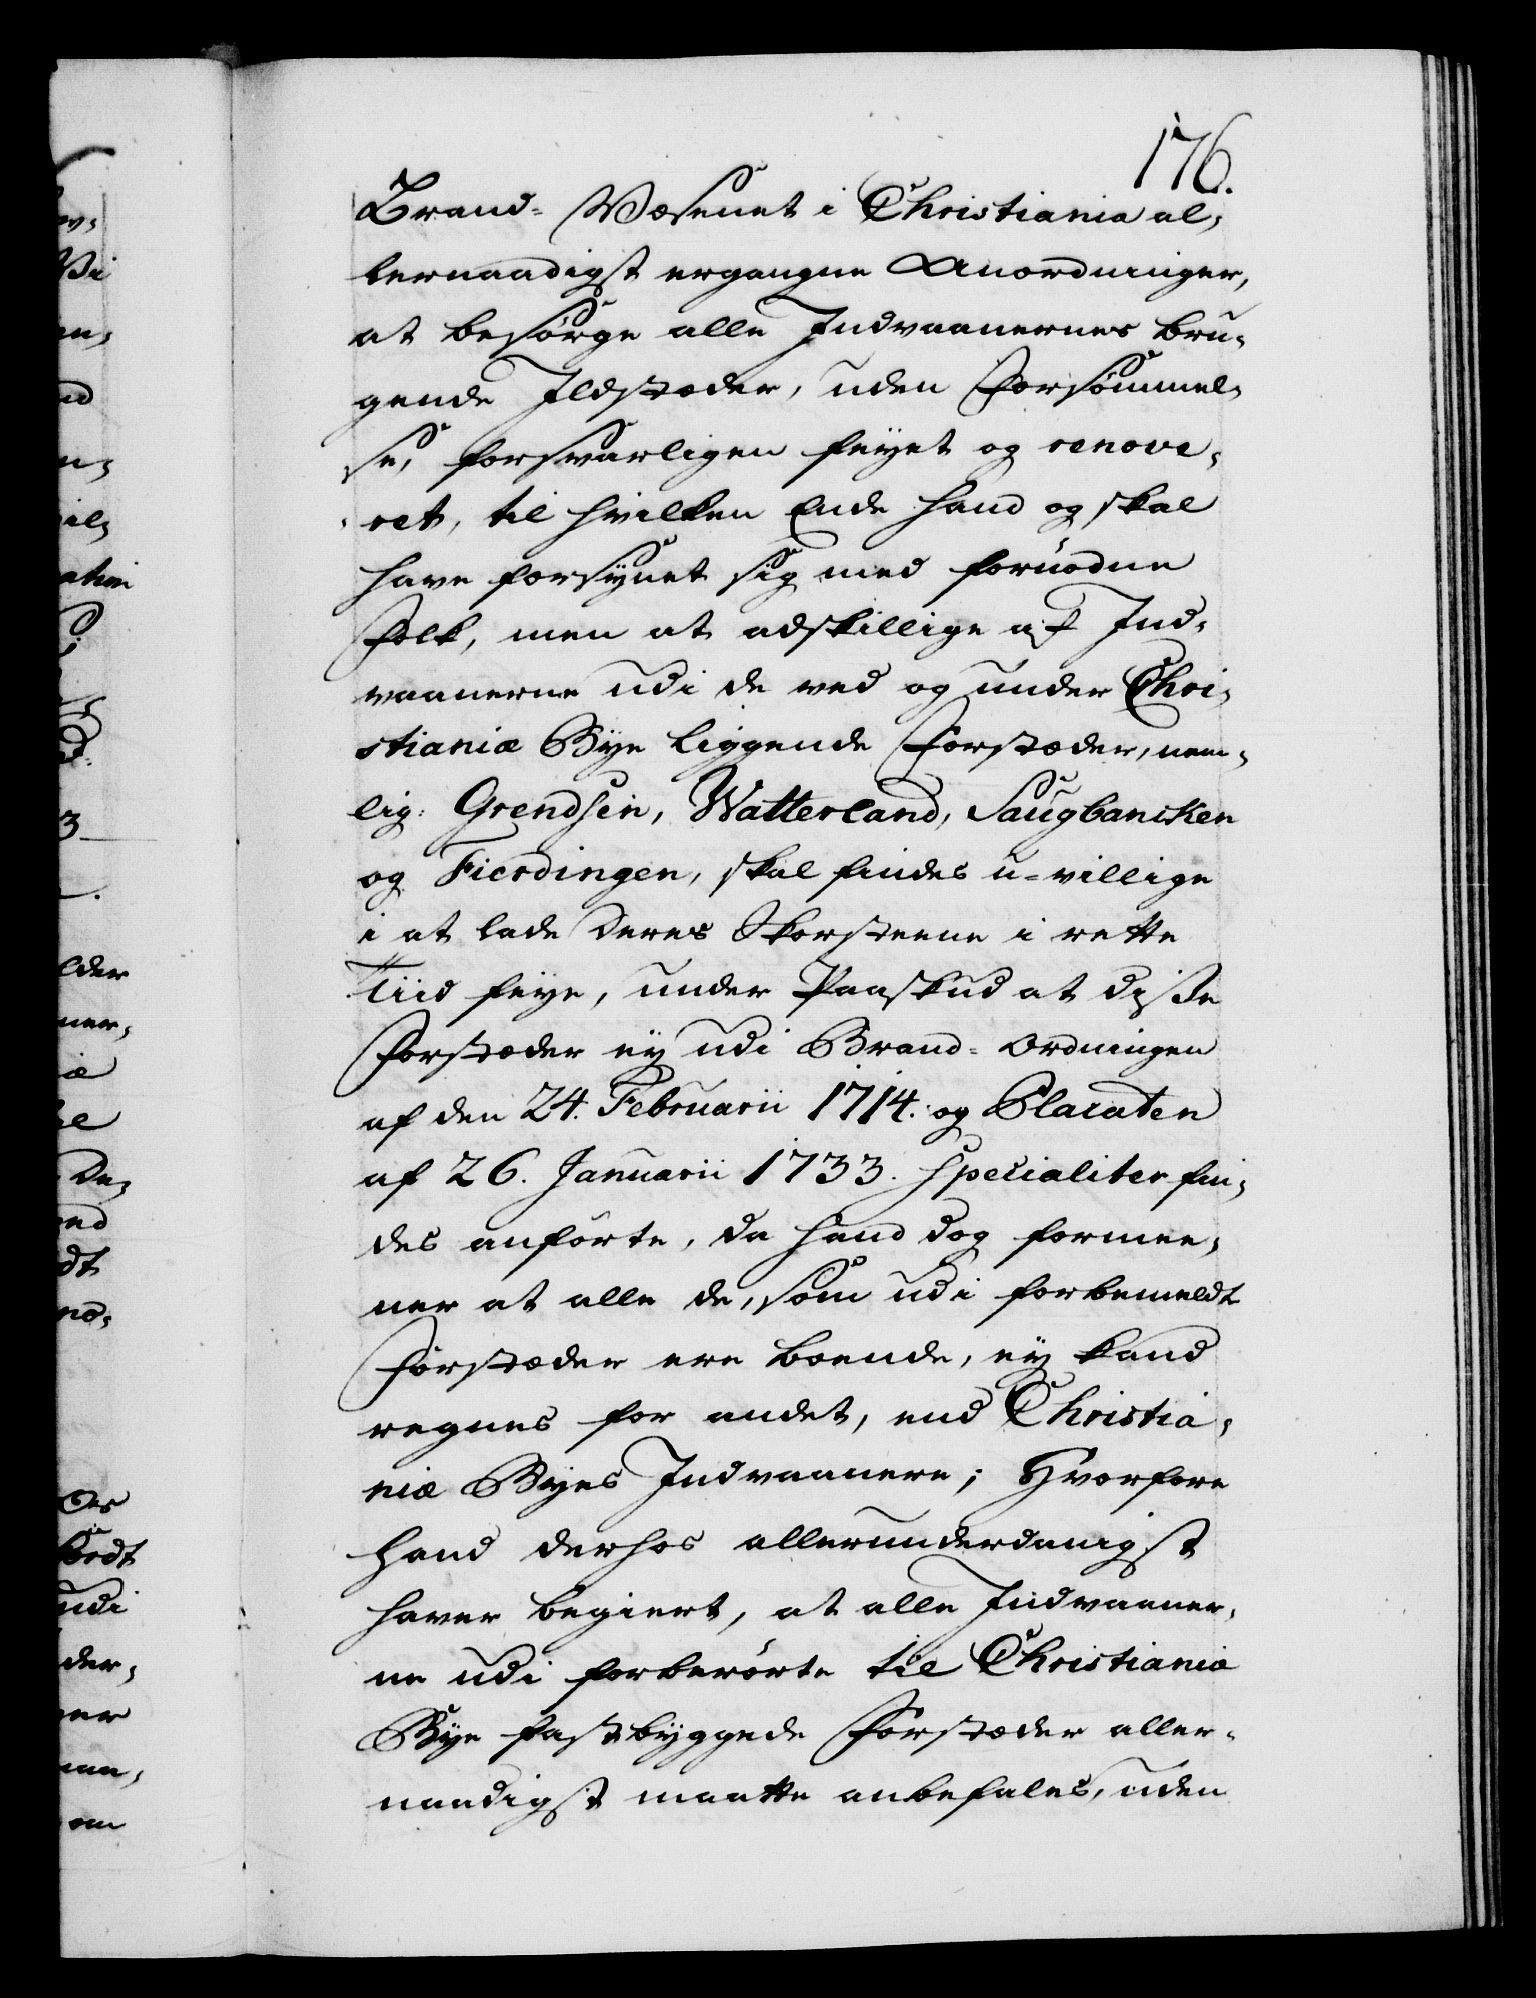 176.
Brand- Wæsenet i Christiania al-
lernaadigst ergangne Anordninger,
at besørge alle Indvaanernes bru-
gende Ildstæder, uden Forsømmel-
se, forsvarligen feyet og renove-
ret, til hvilken Ende hand og skal
have forsynet sig med fornødne
Folk, men at adskillige af Ind-
vaanerne udi de ved og under Chri-
stianiæ Bye liggende Forstæder, nem-
lig: Grendsen, Watterland, Saugbancken
og Fierdingen, skal findes u-villige
i at lade deres Skorsteene i rette
Tiid feye, under Paaskud at disse
Forstæder ey udi Brand- Ordningen
af den 24. Februarii 1714. og Placaten
af 26. Januarii 1733. specialiter fin-
des anførte, da hand dog formee-
ner at alle de, som udi forbemeldt
Forstæder ere boende, ey kand
regnes for andet, end Christia-
niæ Byes Indvaanere; Hvorfore
hand derhos allerunderdanigst
haver begiert, at alle Indvaaner-
ne udi forberørte til Christiania
Bye fast byggede Forstæder aller-
naadigst maatte anbefales, uden